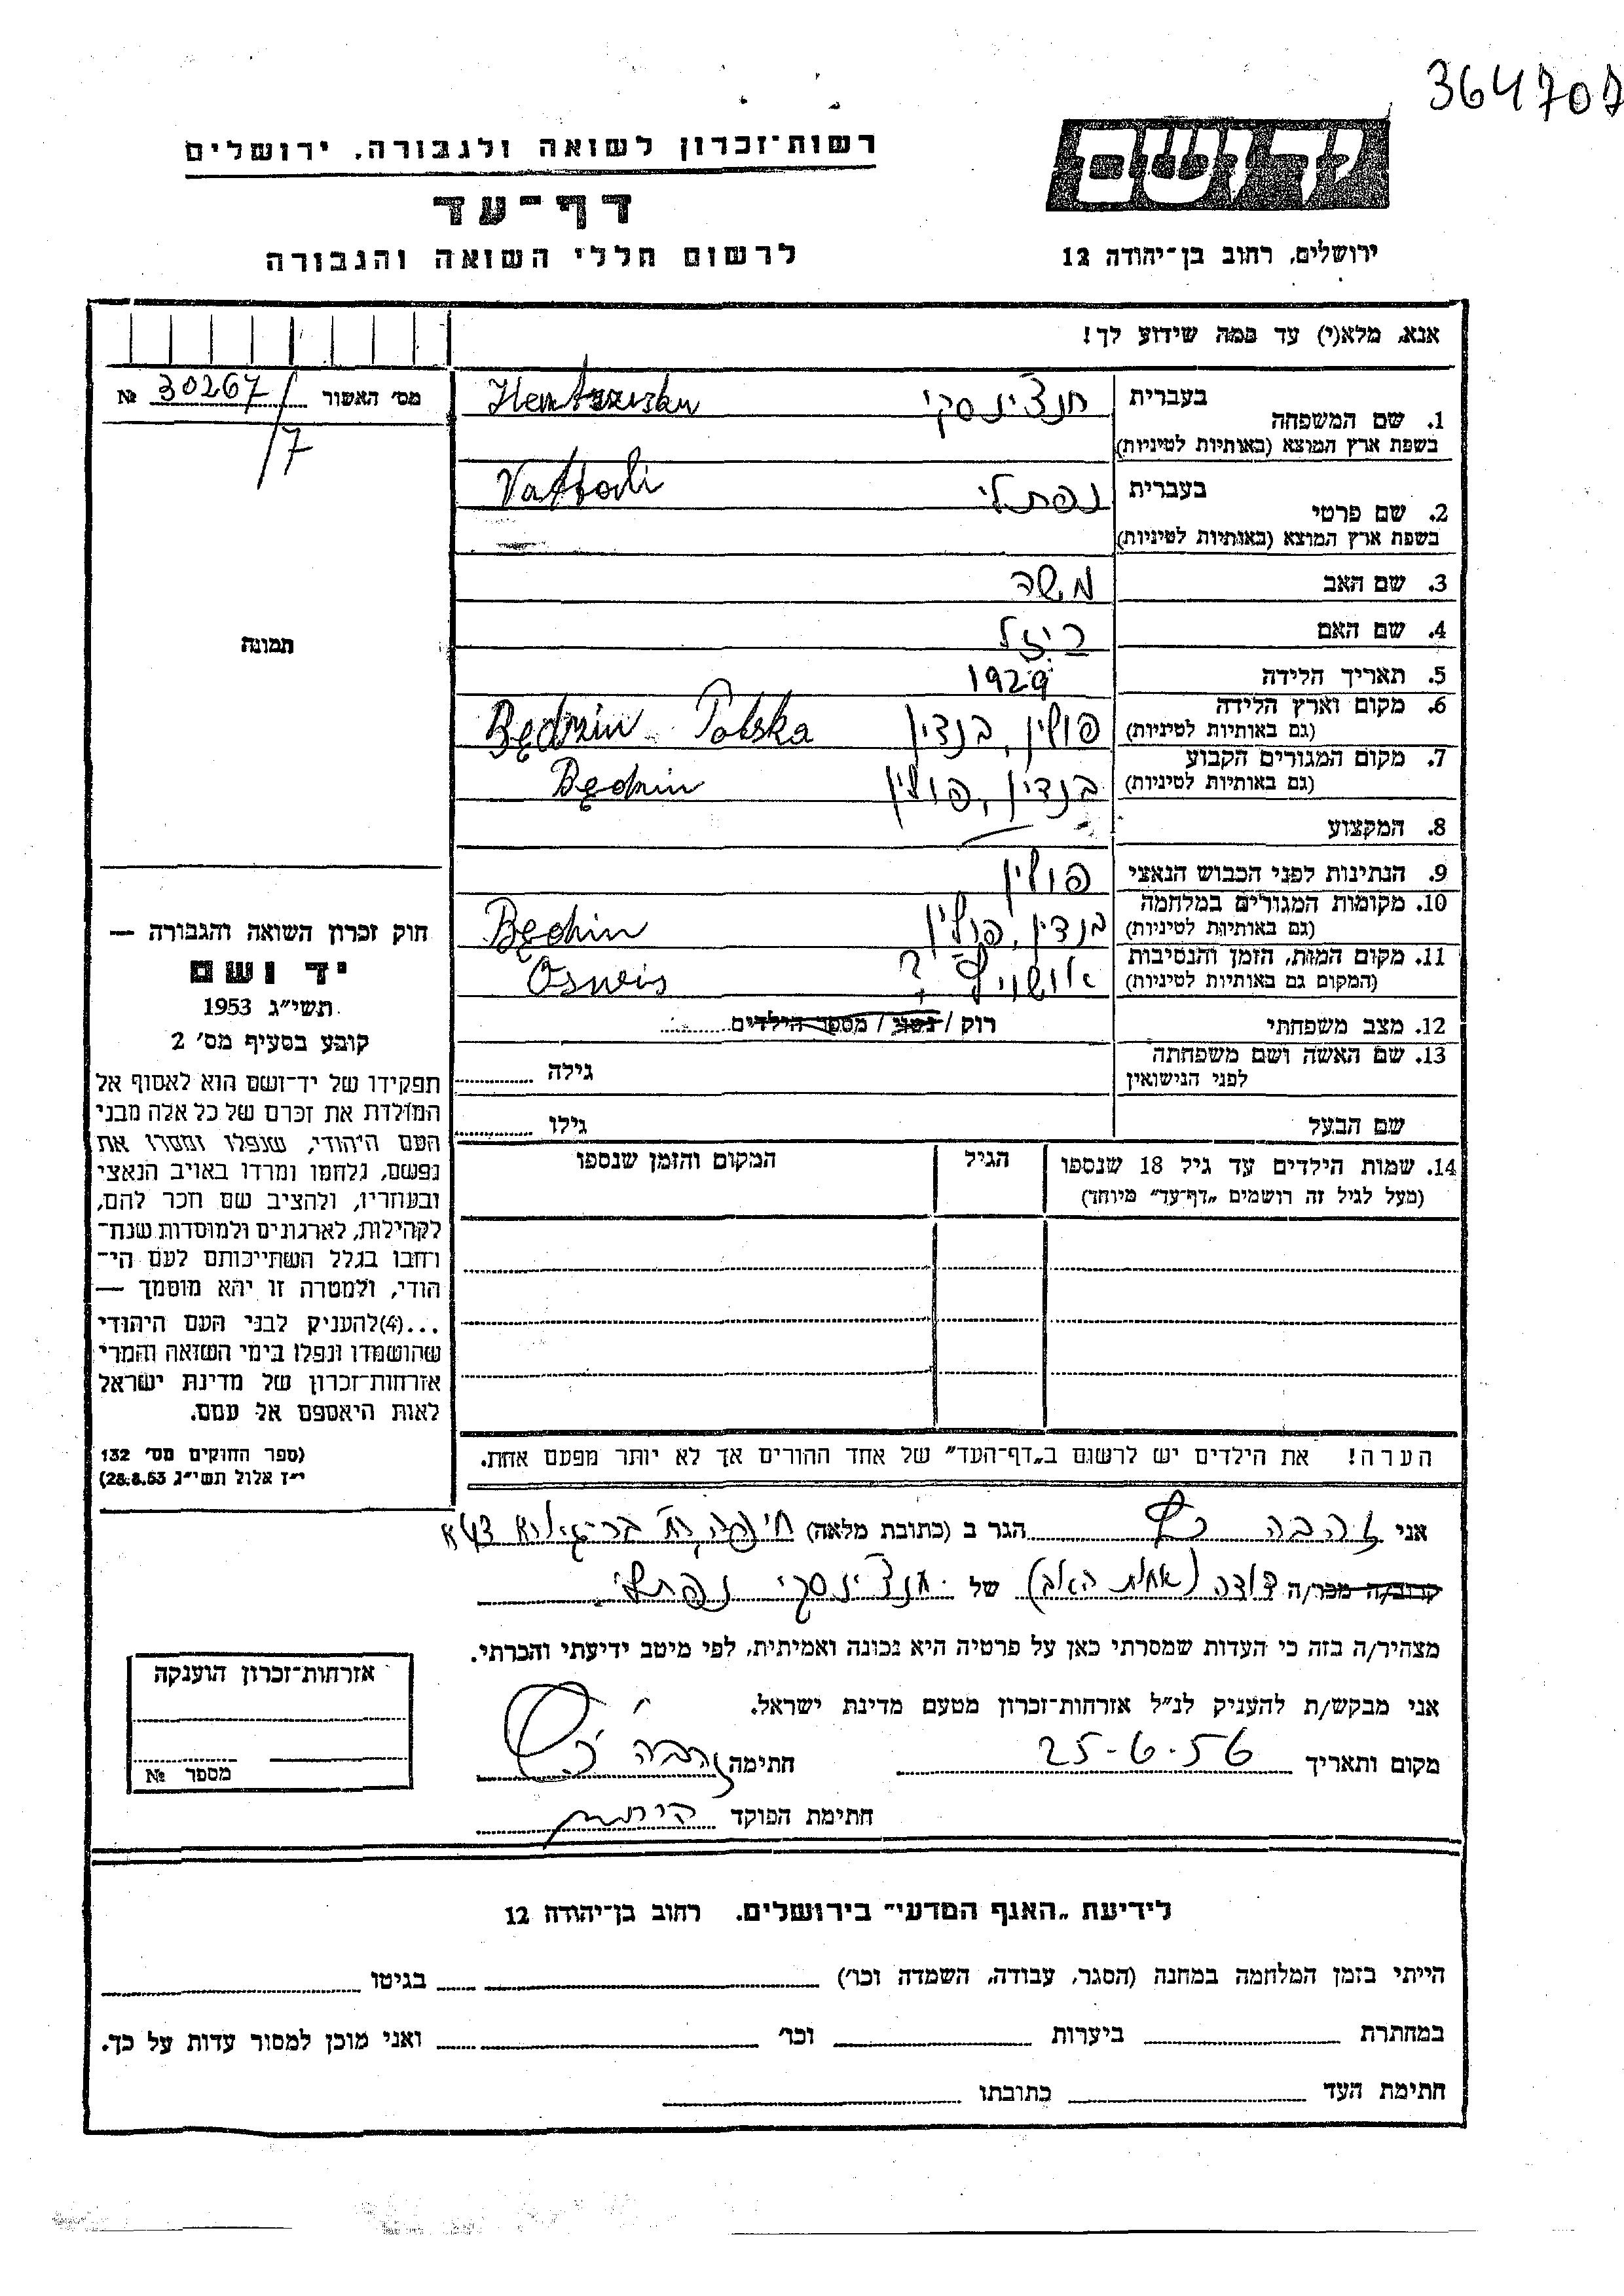 364707
יד ושם
ירושלים, רחוב בן־יהודה 12
רשות־זכרון לשואה ולגבורה, ירושלים
דף־עד
לרשום חללי השואה והגבורה
אנא, מלא(י) עד כמה שידוע לך!
מס׳ האשור № 30267/7
תמונה
1. שם המשפחה בעברית חנצ׳ינסקי
בשפת ארץ המוצא (באותיות לטיניות)
2. שם פרטי בעברית נפתלי
בשפת ארץ המוצא (באותיות לטיניות)
3. שם האב משה
4. שם האם
5. תאריך הלידה 1929
6. מקום וארץ הלידה פולין, בנדין Będzin Polska
(גם באותיות לטיניות)
7. מקום המגורים הקבוע בנדין, פולין Będzin
(גם באותיות לטיניות)
8. המקצוע —
9. הנתינות לפני הכבוש הנאצי פולין
10. מקומות המגורים במלחמה בנדין, פולין Będzin
(גם באותיות לטיניות)
11. מקום המות, הזמן והנסיבות אושויץ ? Osweis
(המקום גם באותיות לטיניות)
12. מצב משפחתי רוק / נשוי / מספר הילדים
13. שם האשה ושם משפחתה גילה
לפני הנישואין
שם הבעל גילו
14. שמות הילדים עד גיל 18 שנספו הגיל המקום והזמן שנספו
(מעל לגיל זה רושמים „דף־עד״ מיוחד)
הערה! את הילדים יש לרשום ב„דף־העד״ של אחד ההורים אך לא יותר מפעם אחת.
חוק זכרון השואה והגבורה —
יד ושם
תשי״ג 1953
קובע בסעיף מס׳ 2
תפקידו של יד־ושם הוא לאסוף אל
המולדת את זכרם של כל אלה מבני
העם היהודי, שנפלו ומסרו את
נפשם, נלחמו ומרדו באויב הנאצי
ובעוזריו, ולהציב שם וזכר להם,
לקהילות, לארגונים ולמוסדות שנח־
רבו בגלל השתייכותם לעם הי־
הודי, ולמטרה זו יהא מוסמך —
...(4) להעניק לבני העם היהודי
שהושמדו ונפלו בימי השואה והמרי
אזרחות־זכרון של מדינת ישראל
לאות היאספם אל עמם.
(ספר החוקים מס׳ 132
י״ז אלול תשי״ג 28.8.53)
אני זהבה כץ הגר ב (כתובת מלאה) חיפה
קרוב/ה מכר/ה דודה (אחות האב) של חנצ׳ינסקי נפתלי
מצהיר/ה בזה כי העדות שמסרתי כאן על פרטיה היא נכונה ואמיתית, לפי מיטב ידיעתי והכרתי.
אני מבקש/ת להעניק לנ״ל אזרחות־זכרון מטעם מדינת ישראל.
מקום ותאריך 25-6-56 חתימה זהבה כץ
חתימת הפוקד
אזרחות־זכרון הוענקה
מספר №
לידיעת „האגף המדעי״ בירושלים. רחוב בן־יהודה 12
הייתי בזמן המלחמה במחנה (הסגר, עבודה, השמדה וכו׳) בגיטו
במחתרת ביערות וכו׳ ואני מוכן למסור עדות על כך.
חתימת העד כתובתו